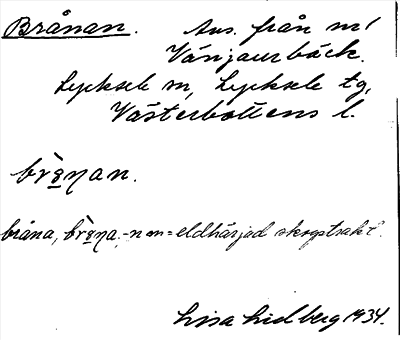 Brånan. Avs. från ml
Vänjaurbäck.
Lycksele sn, Lycksele tg,
Västerbottens l.
brò̱ŋan.
bråna, brò̱ŋa, -n m = eldhärjad skogstrakt.
Lisa Lidberg 1934.